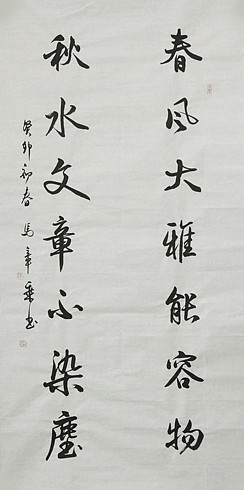 春风大雅能容物
秋水文章不染尘
癸卯初春 马章乘书